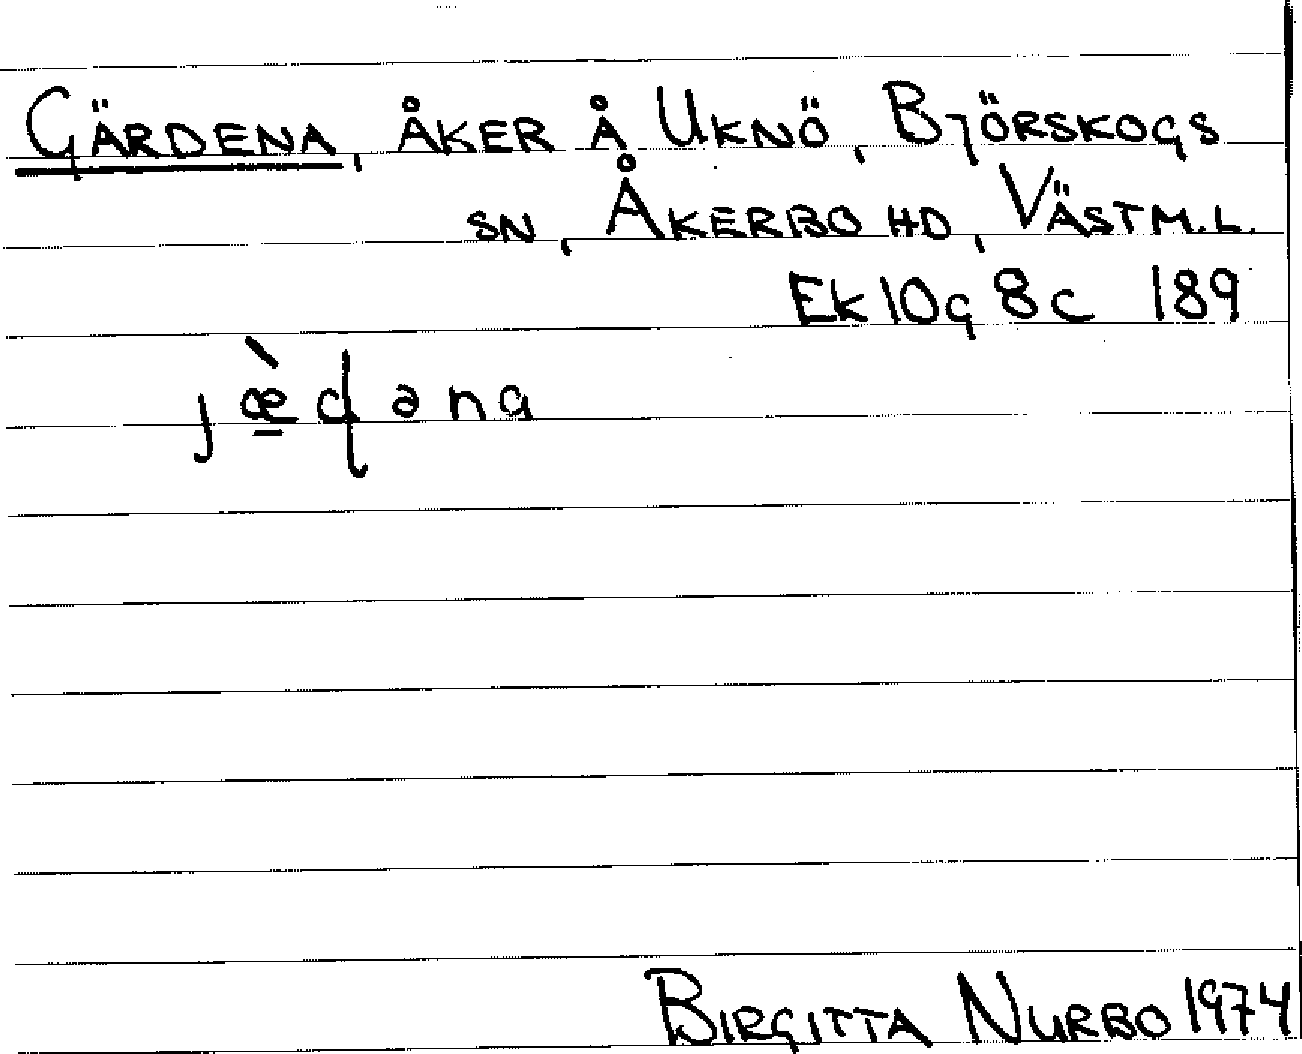 GÄRDENA, ÅKER Å UKNÖ, BJÖRSKOGS
SN, ÅKERBO HD, VÄSTM.L.
Ek 10g 8c 189
jæ̱̀ɖəna
BIRGITTA NURBO 1974